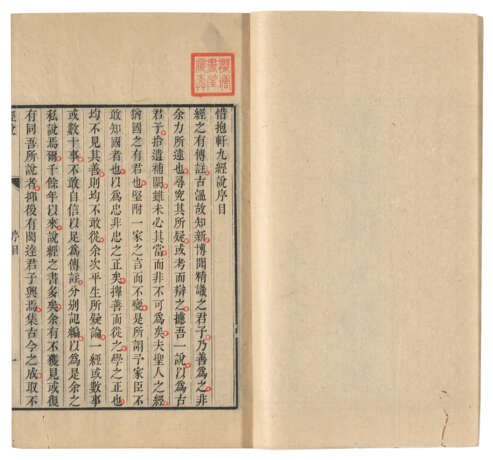 惜抱軒九經說序目
經之有傳註古溫故知新博聞精識之君子乃善為之非
余力所逮也尋究其所疑或考而辯之攄吾一說以為古
君子拾遺補闕雖未必其當而非不可為矣夫聖人之經
猶國之有君也堅附一家之言而不變是所謂予家臣不
敢知國者也以為忠非忠之正矣擇善而從之學之正也
均不見其善則均不敢從余次平生所疑論一經或數事
或數十事不敢自信以是為傳註分別記編以為是余之
私說焉爾千餘年以來說經之書多矣余有不獲見或復
有同吾所說者抑後有閎達君子興焉集古今之成取不